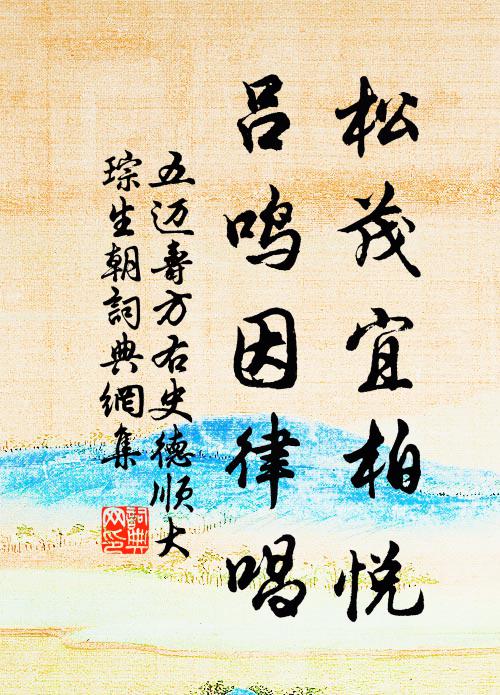 松茂宜柏悦
吕鸣因律唱
五迈壽方右史德顺大
琮生朝詞典網集
詞典